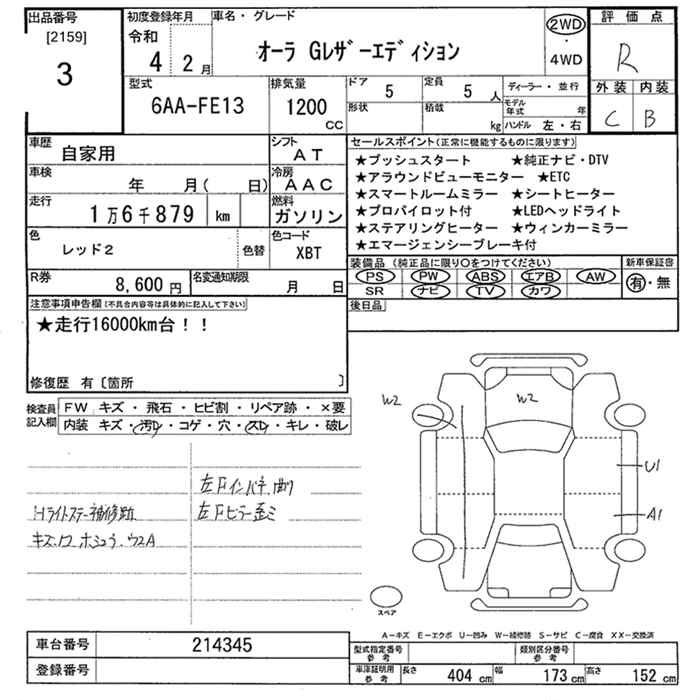 出品番号
[2159]
3
初度登録年月
令和
4 2月
車名・グレード
オーラ Gレザーエディション
2WD
・
4WD
評価点
R
外装 内装
C B
型式
6AA-FE13
排気量
1200
CC
ドア
5
定員
5 人
形状
積載
kg
ディーラー・並行
モデル年式 年
ハンドル 左・右
車歴
自家用
シフト
AT
車検
年 月( 日)
冷房
AAC
走行
1万6千879 km
燃料
ガソリン
色
レッド2
色替
色コード
XBT
セールスポイント(正常に機能するものに限ります)
★プッシュスタート ★純正ナビ・DTV
★アラウンドビューモニター ★ETC
★スマートルームミラー ★シートヒーター
★プロパイロット付 ★LEDヘッドライト
★ステアリングヒーター ★ウィンカーミラー
★エマージェンシーブレーキ付
装備品(純正品に限り○をつけてください)
PS PW ABS エアB AW
SR ナビ TV カワ
新車保証書
有・無
後日品
R券
8,600 円
名変通知期限
月 日
注意事項申告欄(不具合内容等は具体的に記入して下さい)
★走行16000km台!!
修復歴 有〔箇所 〕
検査員
記入欄
FW キズ・飛石・ヒビ割・リペア跡・×要
内装 キズ・汚レ・コゲ・穴・スレ・キレ・破レ
左Fインパネ曲り
Hライトステー補修跡
左Fピラー歪ミ
W2
W2
U1
A1
スペア
A－キズ E－エクボ U－凹み W－補修跡 S－サビ C－腐食 XX－交換済
車台番号
214345
登録番号
型式指定番号
参考
類別区分番号
参考
車庫証明用
参考
長さ 404 cm
幅 173 cm
高さ 152 cm